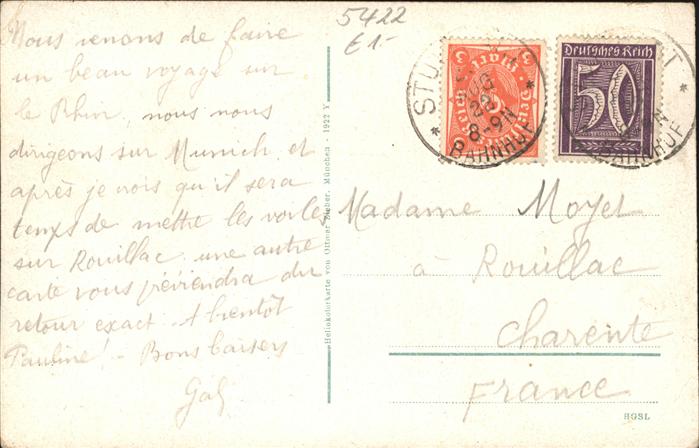 5422
£1-
Nous venons de faire
un beau voyage sur
le Rhin, nous nous
dirigeons sur Munich et
après je vois qu'il sera
temps de mettre les voiles
sur Rouillac une autre
carte vous préviendra du
retour exact. A bientôt
Pauline! - Bons baisers
Heliokolorkarte von Ottmar Zieher, München - 1922 Y
STU
AUG
22
8-9N
* BAHNHOF *
Deutsches Reich
3
Mark
Deutsches Reich
50
T *
BAHNHOF
Madame Moyet
à Rouillac
Charente
France
HGSL